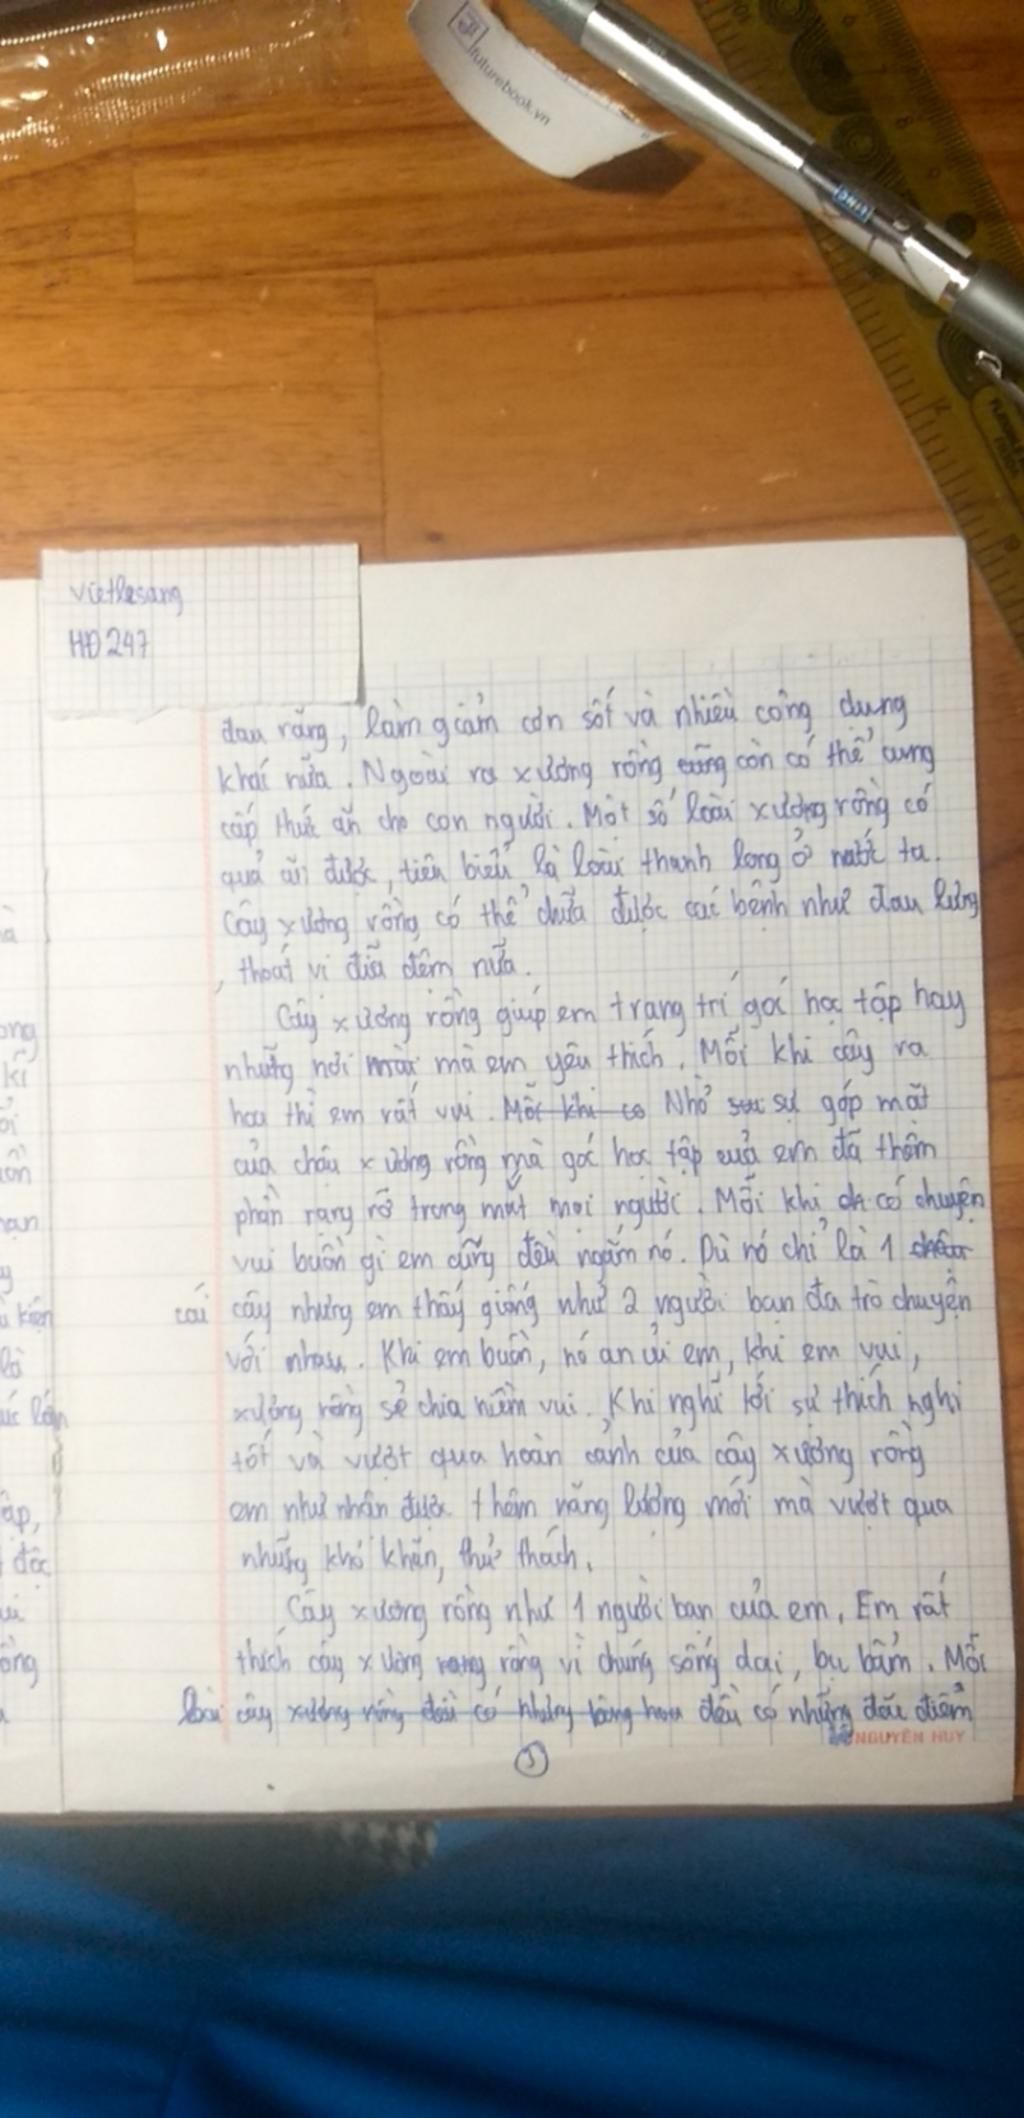 futurebook.vn
vietlesang
HĐ247
đau răng, làm giảm cơn sốt và nhiều công dụng
khác nữa. Ngoài ra xương rồng cũng còn có thể cung
cấp thức ăn cho con người. Một số loài xương rồng có
quả ăn được, tiêu biểu là loài thanh long ở nước ta.
Cây xương rồng có thể chữa được các bệnh như đau lưng
, thoát vị đĩa đệm nữa.
Cây xương rồng giúp em trang trí góc học tập hay
những nơi mà em yêu thích. Mỗi khi cây ra
hoa thì em rất vui. Mỗi khi có Nhờ sự góp mặt
của chậu xương rồng mà góc học tập của em đã thêm
phần rạng rỡ trong mắt mọi người. Mỗi khi có chuyện
vui buồn gì em cũng đều ngắm nó. Dù nó chỉ là 1
cái cây nhưng em thấy giống như 2 người bạn đã trò chuyện
với nhau. Khi em buồn, nó an ủi em, khi em vui,
xương rồng sẻ chia niềm vui. Khi nghĩ tới sự thích nghi
tốt và vượt qua hoàn cảnh của cây xương rồng
em như nhận được thêm năng lượng mới mà vượt qua
những khó khăn, thử thách.
Cây xương rồng như 1 người bạn của em. Em rất
thích cây xương rồng vì chúng sống dai, bụ bẫm. Mỗi
loài cây xương rồng đều có những bông hoa đều có những đặc điểm
NGUYÊN HUY
ong
kí
ạn
áp,
độc